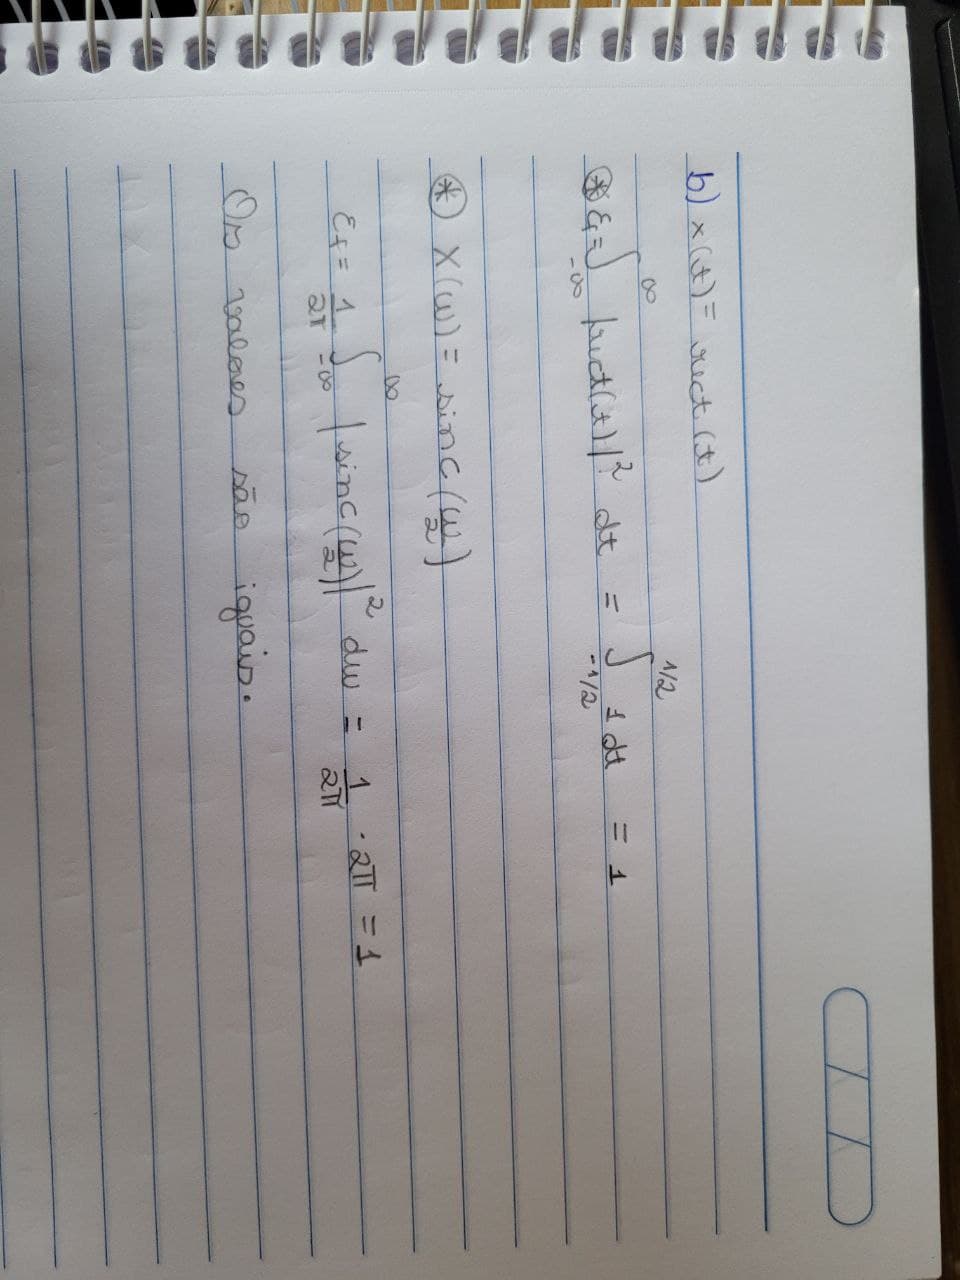 b) x(t) = rect(t)
* Et = ∫_{-∞}^{∞} |rect(t)|² dt = ∫_{-1/2}^{1/2} 1 dt = 1
* X(ω) = sinc(ω/2)
Ef = 1/2π ∫_{-∞}^{∞} |sinc(ω/2)|² dω = 1/2π · 2π = 1
Os valores são iguais.